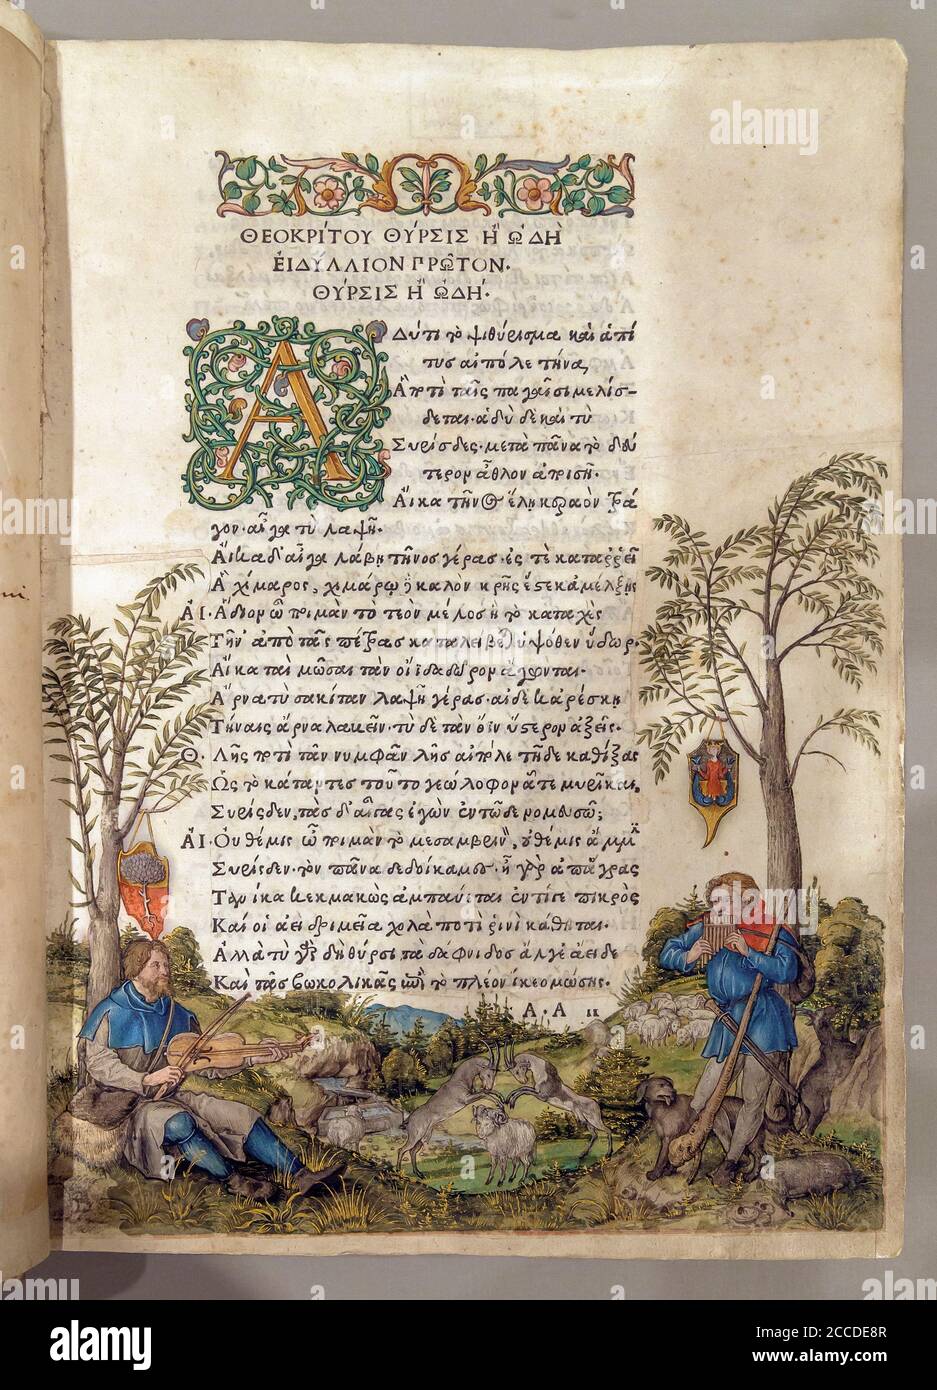 ΘΕΟΚΡΙΤΟΥ ΘΎΡΣΙΣ Ἢ ᾨΔῊ
ἘΙΔΎΛΛΙΟΝ ΠΡΩ͂ΤΟΝ.
ΘΎΡΣΙΣ Ἢ ᾨΔΉ.
ΑΔύ τι τὸ ψιθύρισμα καὶ ἁ πί
τυς αἰπόλε τήνα,
Ἃ ποτὶ ταῖς παγαῖσι μελίσ-
δεται. ἁδὺ δὲ καὶ τὺ
Συρίσδες. μετὰ πᾶνα τὸ δεύ
τερον ἆθλον ἀποισῇ.
Αἴκα τῆνος ἕλῃ κεραὸν τρά
γον. αἶγα τὺ λαψῇ.
Αἴκα δ' αἶγα λάβῃ τῆνος γέρας. ἐς τὲ καταῤῥεῖ
Ἁ χίμαρος, χιμάρῳ καλὸν κρῆς ἔςε κἀμέλξῃς
ΑΙ. Ἅδιον ὦ ποιμὰν τὸ τεὸν μέλος ἢ τὸ καταχὲς
Τῆν' ἀπὸ τᾶς πέτρας καταλείβεται ὑψόθεν ὕδωρ.
Αἴκα ταὶ μῶσαι τὰν οἴϊδα δῶρον ἄγωνται.
Ἄρνα τὺ σακίταν λαψῇ γέρας. αἰ δέ κ' ἀρέσκῃ
Τήναις ἄρνα λαβεῖν. τὺ δὲ τὰν ὄϊν ὕςερον ἀξεῖς.
Θ. Λῇς ποτὶ τᾶν νυμφᾶν λῇς αἰπόλε τῇδε καθίξας
Ὡς τὸ κάταντες τοῦτο γεώλοφον ᾇτε μυρῖκαι,
Συρίσδεν, τὰς δ' αἶγας ἐγὼν ἐν τῷδε νομευσῶ;
ΑΙ. Οὐ θέμις ὦ ποιμὰν τὸ μεσαμβρινὸν, οὐ θέμις ἄμμιν
Συρίσδεν. τὸν πᾶνα δεδοίκαμες. ἦ γὰρ ἀπ' ἄγρας
Τανίκα κεκμακὼς ἀμπαύεται ἐντί γε πικρὸς
Καί οἱ ἀεὶ δριμεῖα χολὰ ποτὶ ῥινὶ κάθηται.
Ἀλλὰ τὺ γὰρ δὴ θύρσι τὰ δάφνιδος ἄλγε' ἄειδες
Καὶ τᾶς βωκολικᾶς ἐπὶ τὸ πλέον ἵκεο μώσης.
Α.Α ii
alamy
Image ID: 2CCDE8R
www.alamy.com